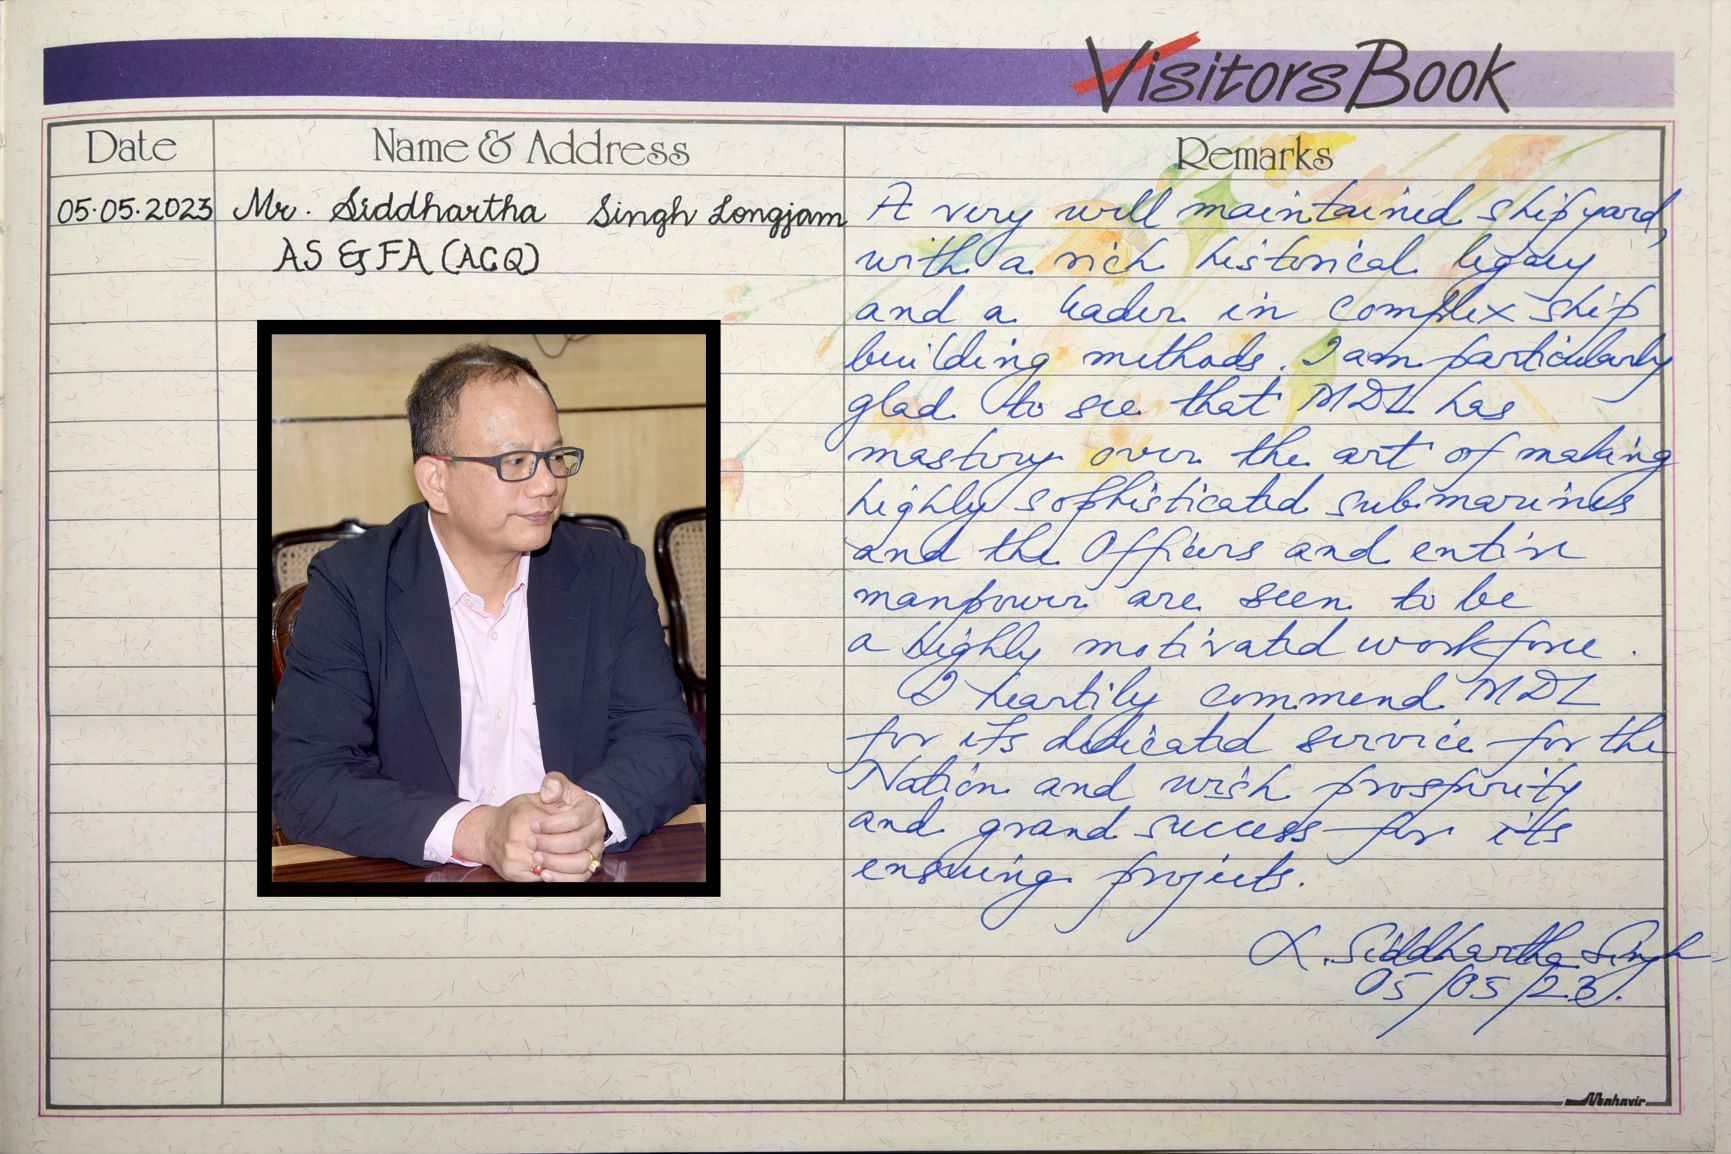 Visitors Book
Date
Name & Address
Remarks
05.05.2023
Mr. Siddhartha Singh Longjam
AS & FA (ACQ)
A very well maintained shipyard,
with a rich historical legacy
and a leader in complex ship
building methods. I am particularly
glad to see that MDL has
mastery over the art of making
highly sophisticated submarines
and the Officers and entire
manpower are seen to be
a highly motivated workforce.
I heartily commend MDL
for its dedicated service for the
Nation and wish prosperity
and grand success for its
ensuing projects.
L. Siddhartha Singh
05/05/23.
Mahavir